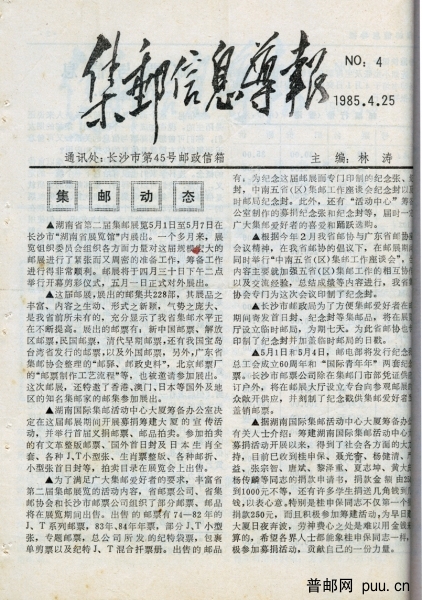 集郵信息導報
NO：4
1985.4.25
通讯处：长沙市第45号邮政信箱
主 编：林 涛
集 邮 动 态
▲湖南省第二届集邮展览5月1日至5月7日在
长沙市"湖南省展览馆"内展出。一个多月来，展
览组织委员会组织各方面力量对这届规模较大的
邮展进行了紧张而又周密的准备工作，筹备工作
进行得非常顺利。邮展将于四月三十日下午二点
举行开幕的剪彩仪式，五月一日正式对外展出。
▲这届邮展，展出的邮集共228部，其展品之
丰富、内容之生动、形式之新颖，气势之庞大，
是我省前所未有的，充分显示了我省集邮水平正
在不断提高。展出的邮票有：新中国邮票，解放
区邮票，民国邮票，清代早期邮票，还有我国宝岛
台湾省发行的邮票，以及外国邮票，另外，广东省
集邮协会整理的"邮驿、邮政史料"、北京邮票厂
的"邮票制作工艺流程"等，也被邀请参加展出。
这次邮展，还特邀了香港、澳门、日本等国外及地
区的知名集邮家的邮集参加展出。
▲湖南国际集邮活动中心大厦筹备办公室决
定在这届邮展期间开展募捐筹建大厦的宣传活
动，并举行首届义捐邮票、邮品拍卖。参加拍卖
的有文革整版邮票、国外首日封及日本生肖全
套、各种J、T小型张、生肖票整版、各种邮折、
小型张首日封等，拍卖目录在展览会上出售。
▲为了满足广大集邮爱好者的要求，丰富省
第二届集邮展览的活动内容，省邮票公司、省集
邮协会和长沙市邮票公司组织了部分邮票、邮品
将在展览期间出售。出售的邮票有74—82年的
J、T系列邮票，83年、84年年票，部分J、T小型
张，专题邮票，总公司所发的纪特袋票，包袱
单剪票以及纪特J、T混合扦票册。出售的邮品
有，为纪念这届邮展而专门印制的纪念张、
封，中南五省(区)集邮工作座谈会纪念封以及
时邮局纪念封。此外，还有"活动中心"筹
公室制作的募捐纪念张和纪念封等，届时一定
广大集邮爱好者的喜爱和踊跃选购。
▲根据今年2月我省邮协与广东省邮协
会议精神，在我省邮协的倡议下，在邮展期
同时举行"中南五省(区)集邮工作座谈会"，
内容主要就加强五省(区)集邮工作的相互协
以及交流经验，总结成绩等内容进行，我省集
协会专门为这次会议印制了纪念封。
▲长沙市邮政局为了方便集邮爱好者在邮
期间寄发首日封、纪念封等集邮品，将在展
厅设立临时邮局，为期七天。为此省邮协会
印制了纪念封并加盖临时邮局的日戳。
▲5月1日和5月4日，邮电部将发行纪念
总工会成立60周年和"国际青年年"两套纪
票。长沙市邮票公司除在集邮门市部凭证供
订户外，将在邮展大厅设立专台向参观邮展
众敞开供应，并刻制了纪念戳供集邮爱好者
盖销邮票。
▲据湖南国际集邮活动中心大厦筹备办
有关人士介绍：筹建湖南国际集邮活动中心
募捐活动开展以来，得到了社会各方面的大
持，目前已收到桂申保、聂光奇、杨健清、
益、张宗智、唐斌、黎泽重、夏志坤、黄大
杨传麟等同志的捐款申请书，捐款金额由
到1000元不等，还有许多学生捐送几角钱到
钱，以表心意。特别是桂申保同志不仅第一个
捐款250元，而且积极参加筹建活动，为早日
大厦日夜奔波，劳神费心之处是难以用金钱
算的，希望各界人士都能象桂申保同志一样，
极参加募捐活动，贡献自己的一份力量。
普邮网 puu.cn